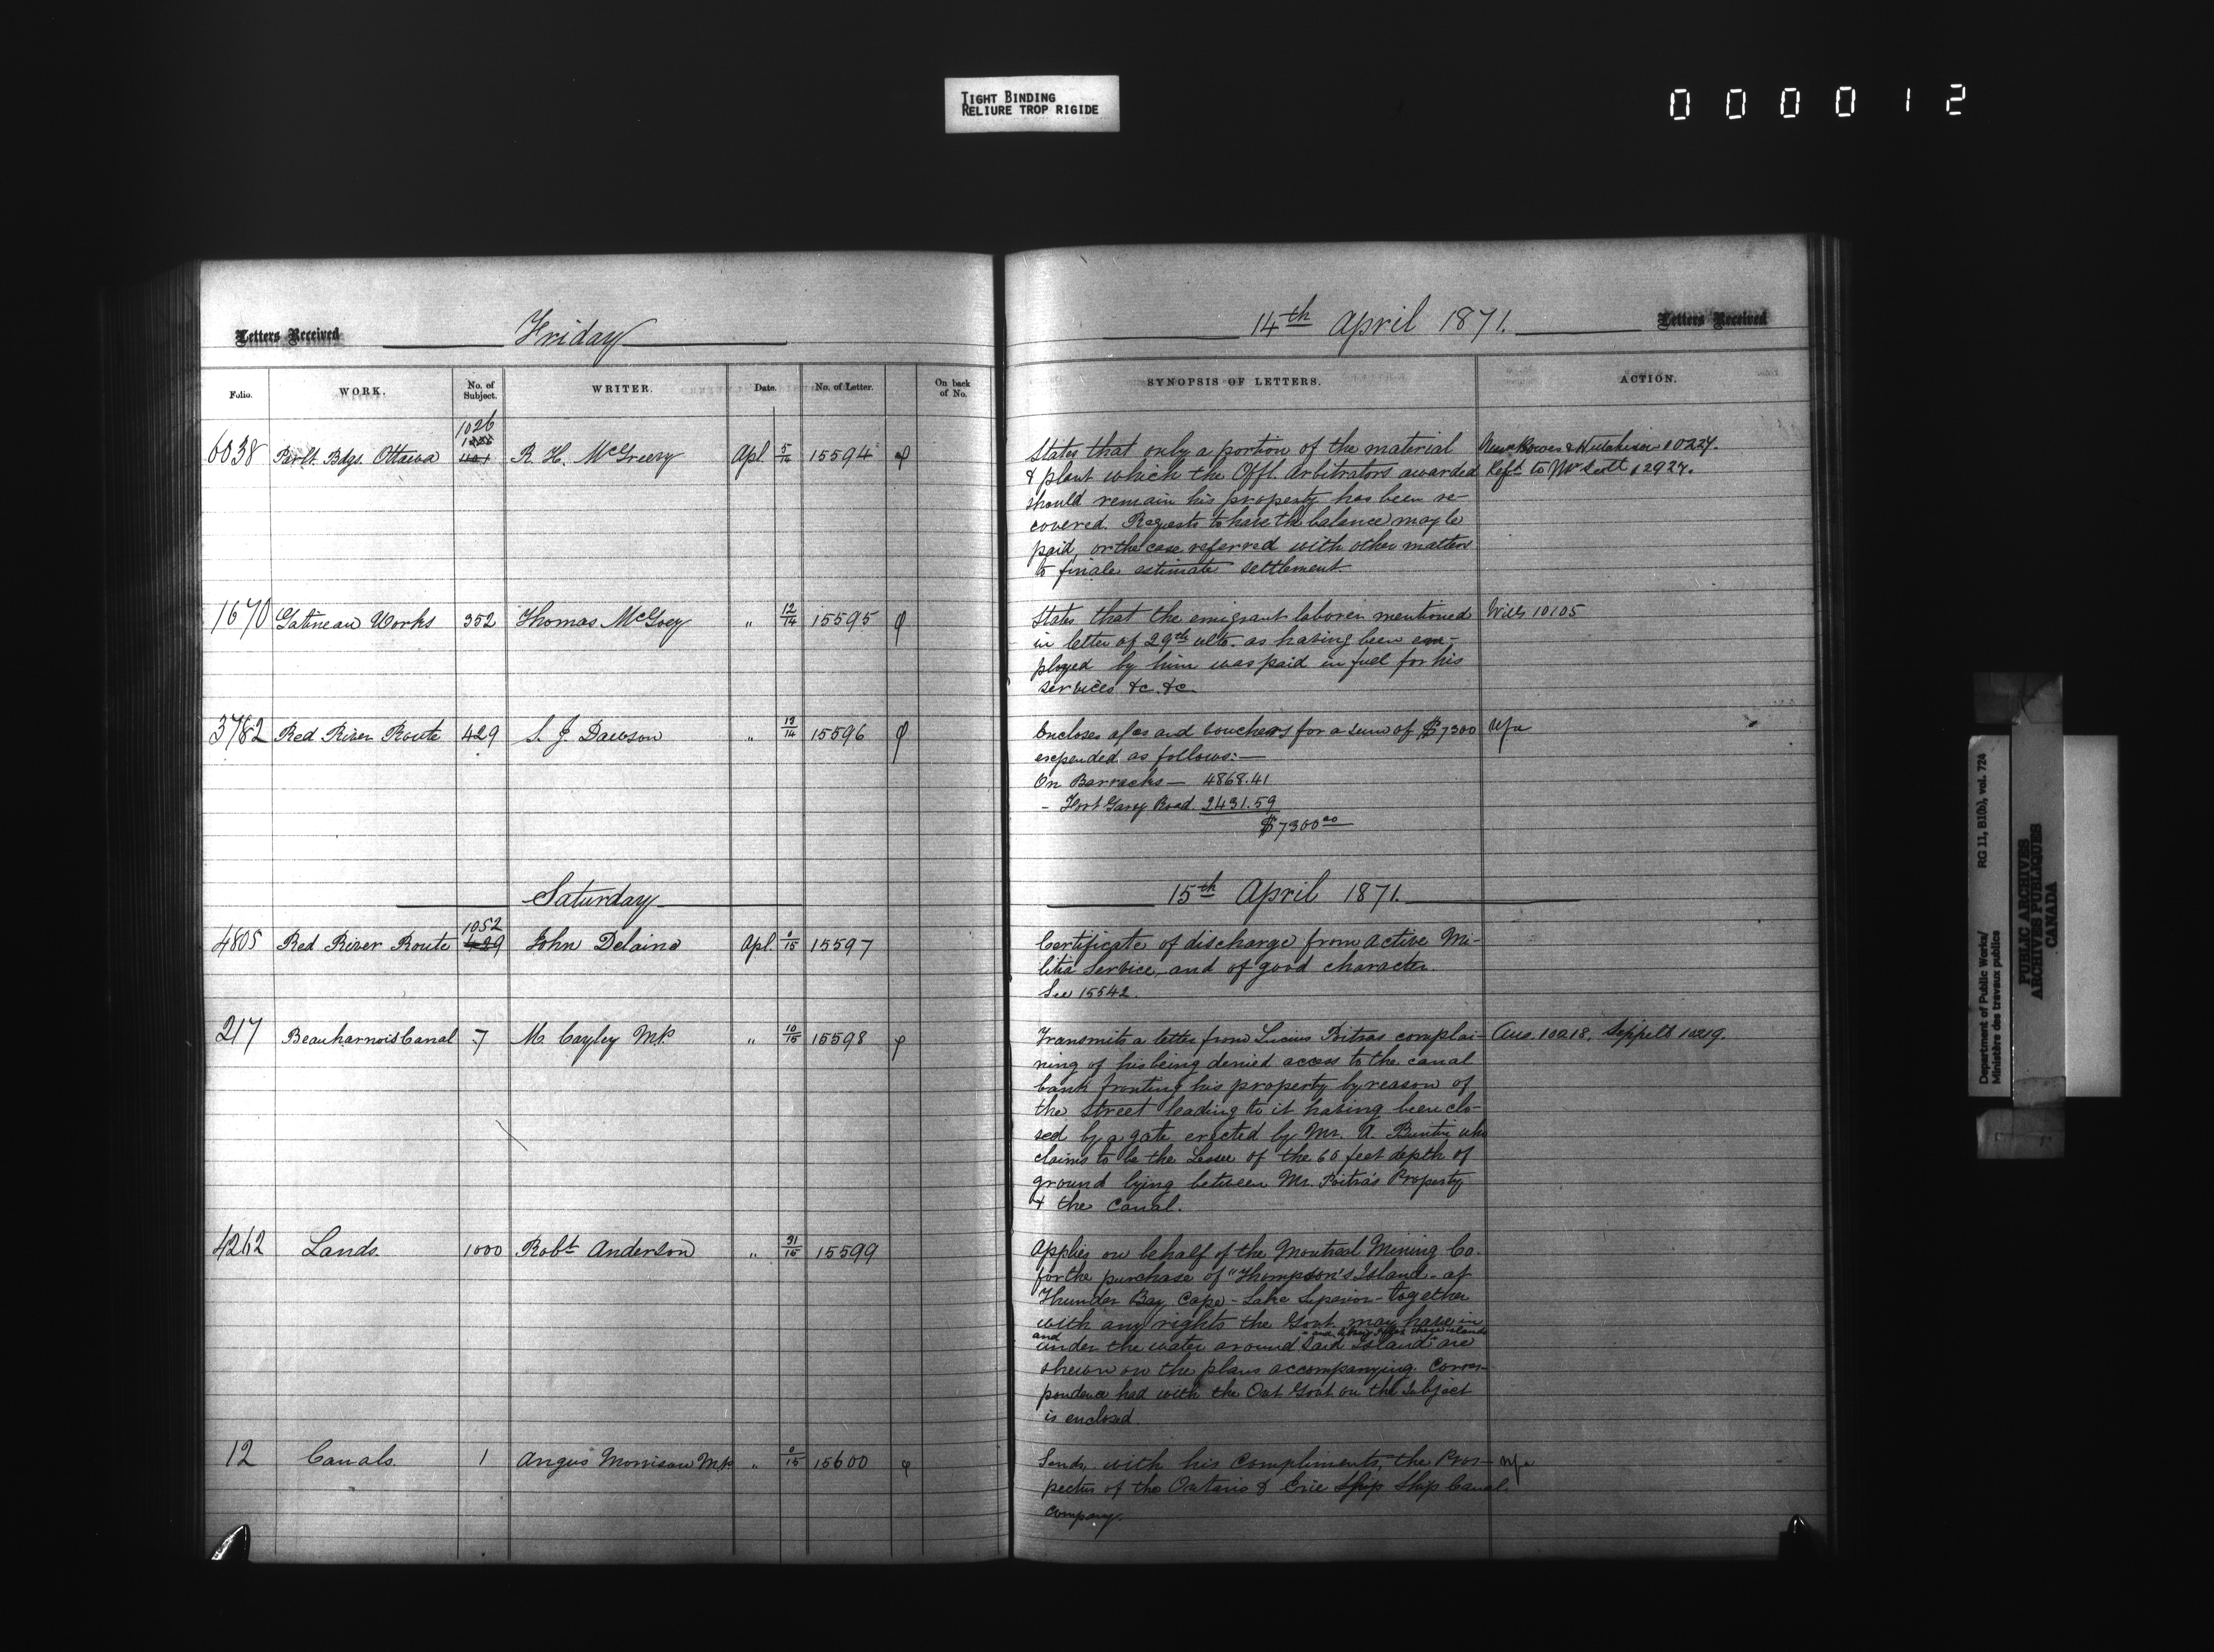 TIGHT BINDING
RELIURE TROP RIGIDE
000012
Letters Received Friday
Folio. WORK. No. of Subject. WRITER. Date. No. of Letter. On back of No.
1026
6038 Parlt. Bdgs. Ottawa 1101 R. H. McGreevy Apl. 5/14 15594
1670 Gatineau Works 352 Thomas McGoey " 12/14 15595
3782 Red River Route 429 S. J. Dawson " 13/14 15596
Saturday
1052
4805 Red River Route 429 John Delaino Apl. 0/15 15597
217 Beauharnois Canal 7 M. Cayley M.P. " 10/15 15598
4262 Lands. 1000 Robt Anderson " 31/15 15599
12 Canals. 1 Angus Morrison M.P. " 0/15 15600
14th April 1871. Letters Received
SYNOPSIS OF LETTERS. ACTION.
States that only a portion of the material Bowes & Hutchison 10224.
& plant which the Offl. Arbitrators awarded Refd to Mr Scott 12924.
should remain his property has been re-
covered. Requests to have the balance may be
paid, or the case referred with other matters
to finale estimate settlement.
States that the emigrant laborer mentioned Wills 10105
in letter of 29th ulto. as having been em-
ployed by him was paid in fuel for his
services &c. &c.
Encloses a/cs and vouchers for a sum of $7300 N/a
expended as follows:—
On Barracks — 4868.41
- Fort Garry Road. 2431.59
$7300.00
15th April 1871.
Certificate of discharge from active Mi-
litia Service, and of good character.
See 15542.
Transmits a letter from Lucius Poitras complai- Ans. 10218. Sippell 10219.
ning of his being denied access to the canal
bank fronting his property by reason of
the street leading to it having been clo-
sed by a gate erected by Mr. A. Buntin who
claims to be the Lessee of the 60 feet depth of
ground lying between Mr. Poitras Property
& the Canal.
Applies on behalf of the Montreal Mining Co.
for the purchase of "Thompson's Island - at
Thunder Bay Cape - Lake Superior - together
with any rights the Govt. may have in
and these islands
under the water around said Island are
shewn on the plans accompanying. Corres-
pondence had with the Ont Govt on the subject
is enclosed.
Sends, with his Compliments, the Pros- N/a
pectus of the Ontario & Erie Ship Ship Canal
Company.
Department of Public Works/ RG 11, B1(b), vol. 724
Ministère des travaux publics
PUBLIC ARCHIVES
ARCHIVES PUBLIQUES
CANADA